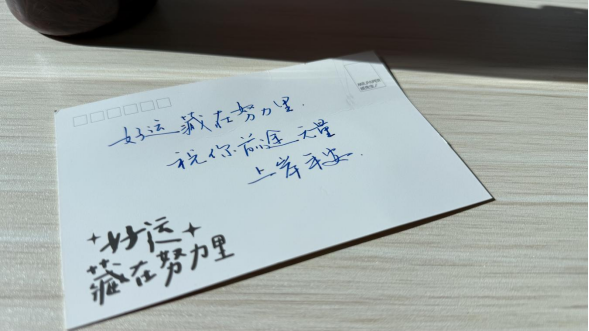 好运藏在努力里.
祝你前途无量
上岸平安.
好运
藏在努力里